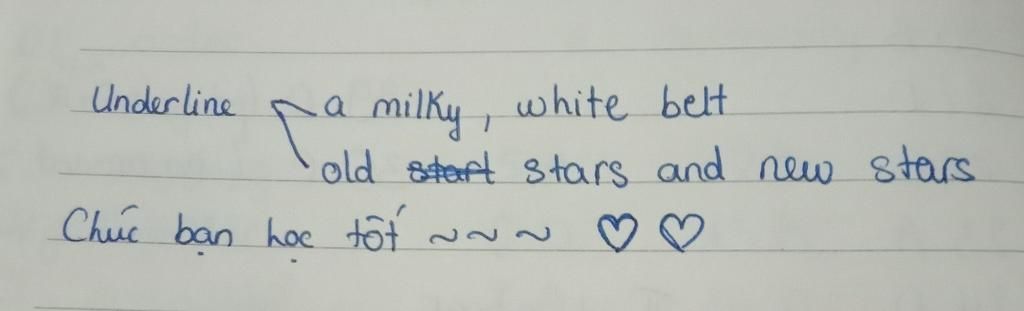 Underline a milky, white belt
old start stars and new stars
Chúc bạn học tốt ~ ~ ~ ♡ ♡